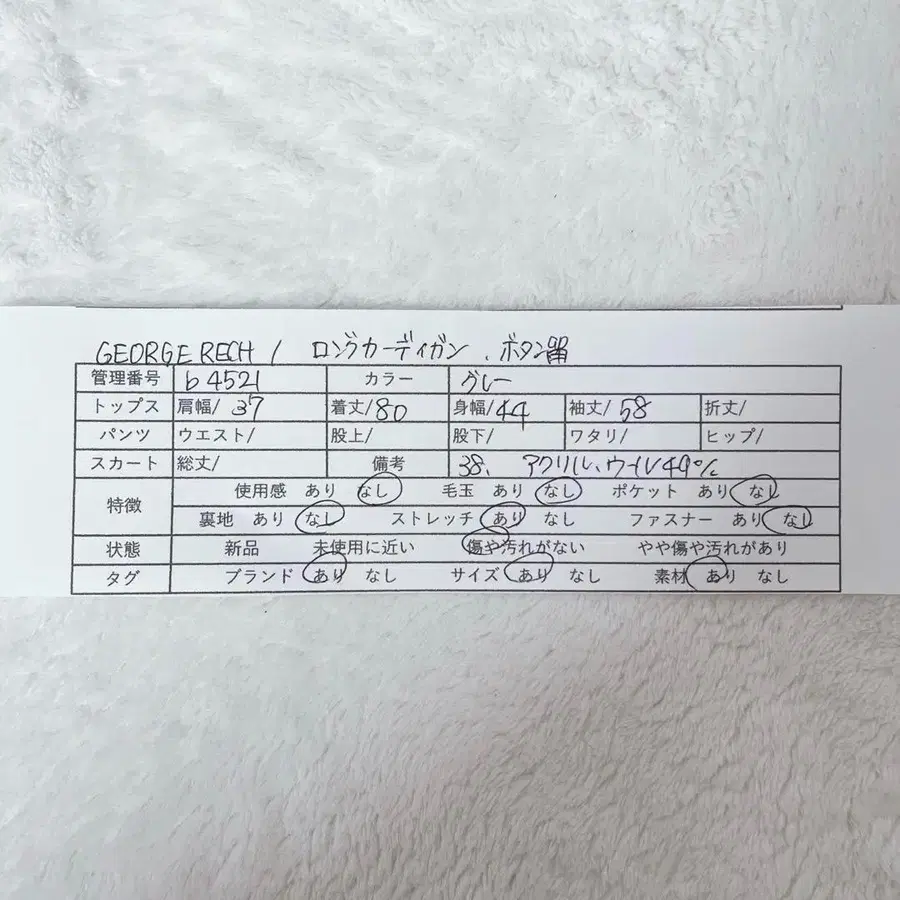 GEORGE RECH / ロングカーディガン、ボタン留
管理番号 b4521 カラー グレー
トップス 肩幅/37 着丈/80 身幅/44 袖丈/58 折丈/
パンツ ウエスト/ 股上/ 股下/ ワタリ/ ヒップ/
スカート 総丈/ 備考 38、アクリル、ウール49%
特徴 使用感 あり なし 毛玉 あり なし ポケット あり なし
裏地 あり なし ストレッチ あり なし ファスナー あり なし
状態 新品 未使用に近い 傷や汚れがない やや傷や汚れがあり
タグ ブランド あり なし サイズ あり なし 素材 あり なし